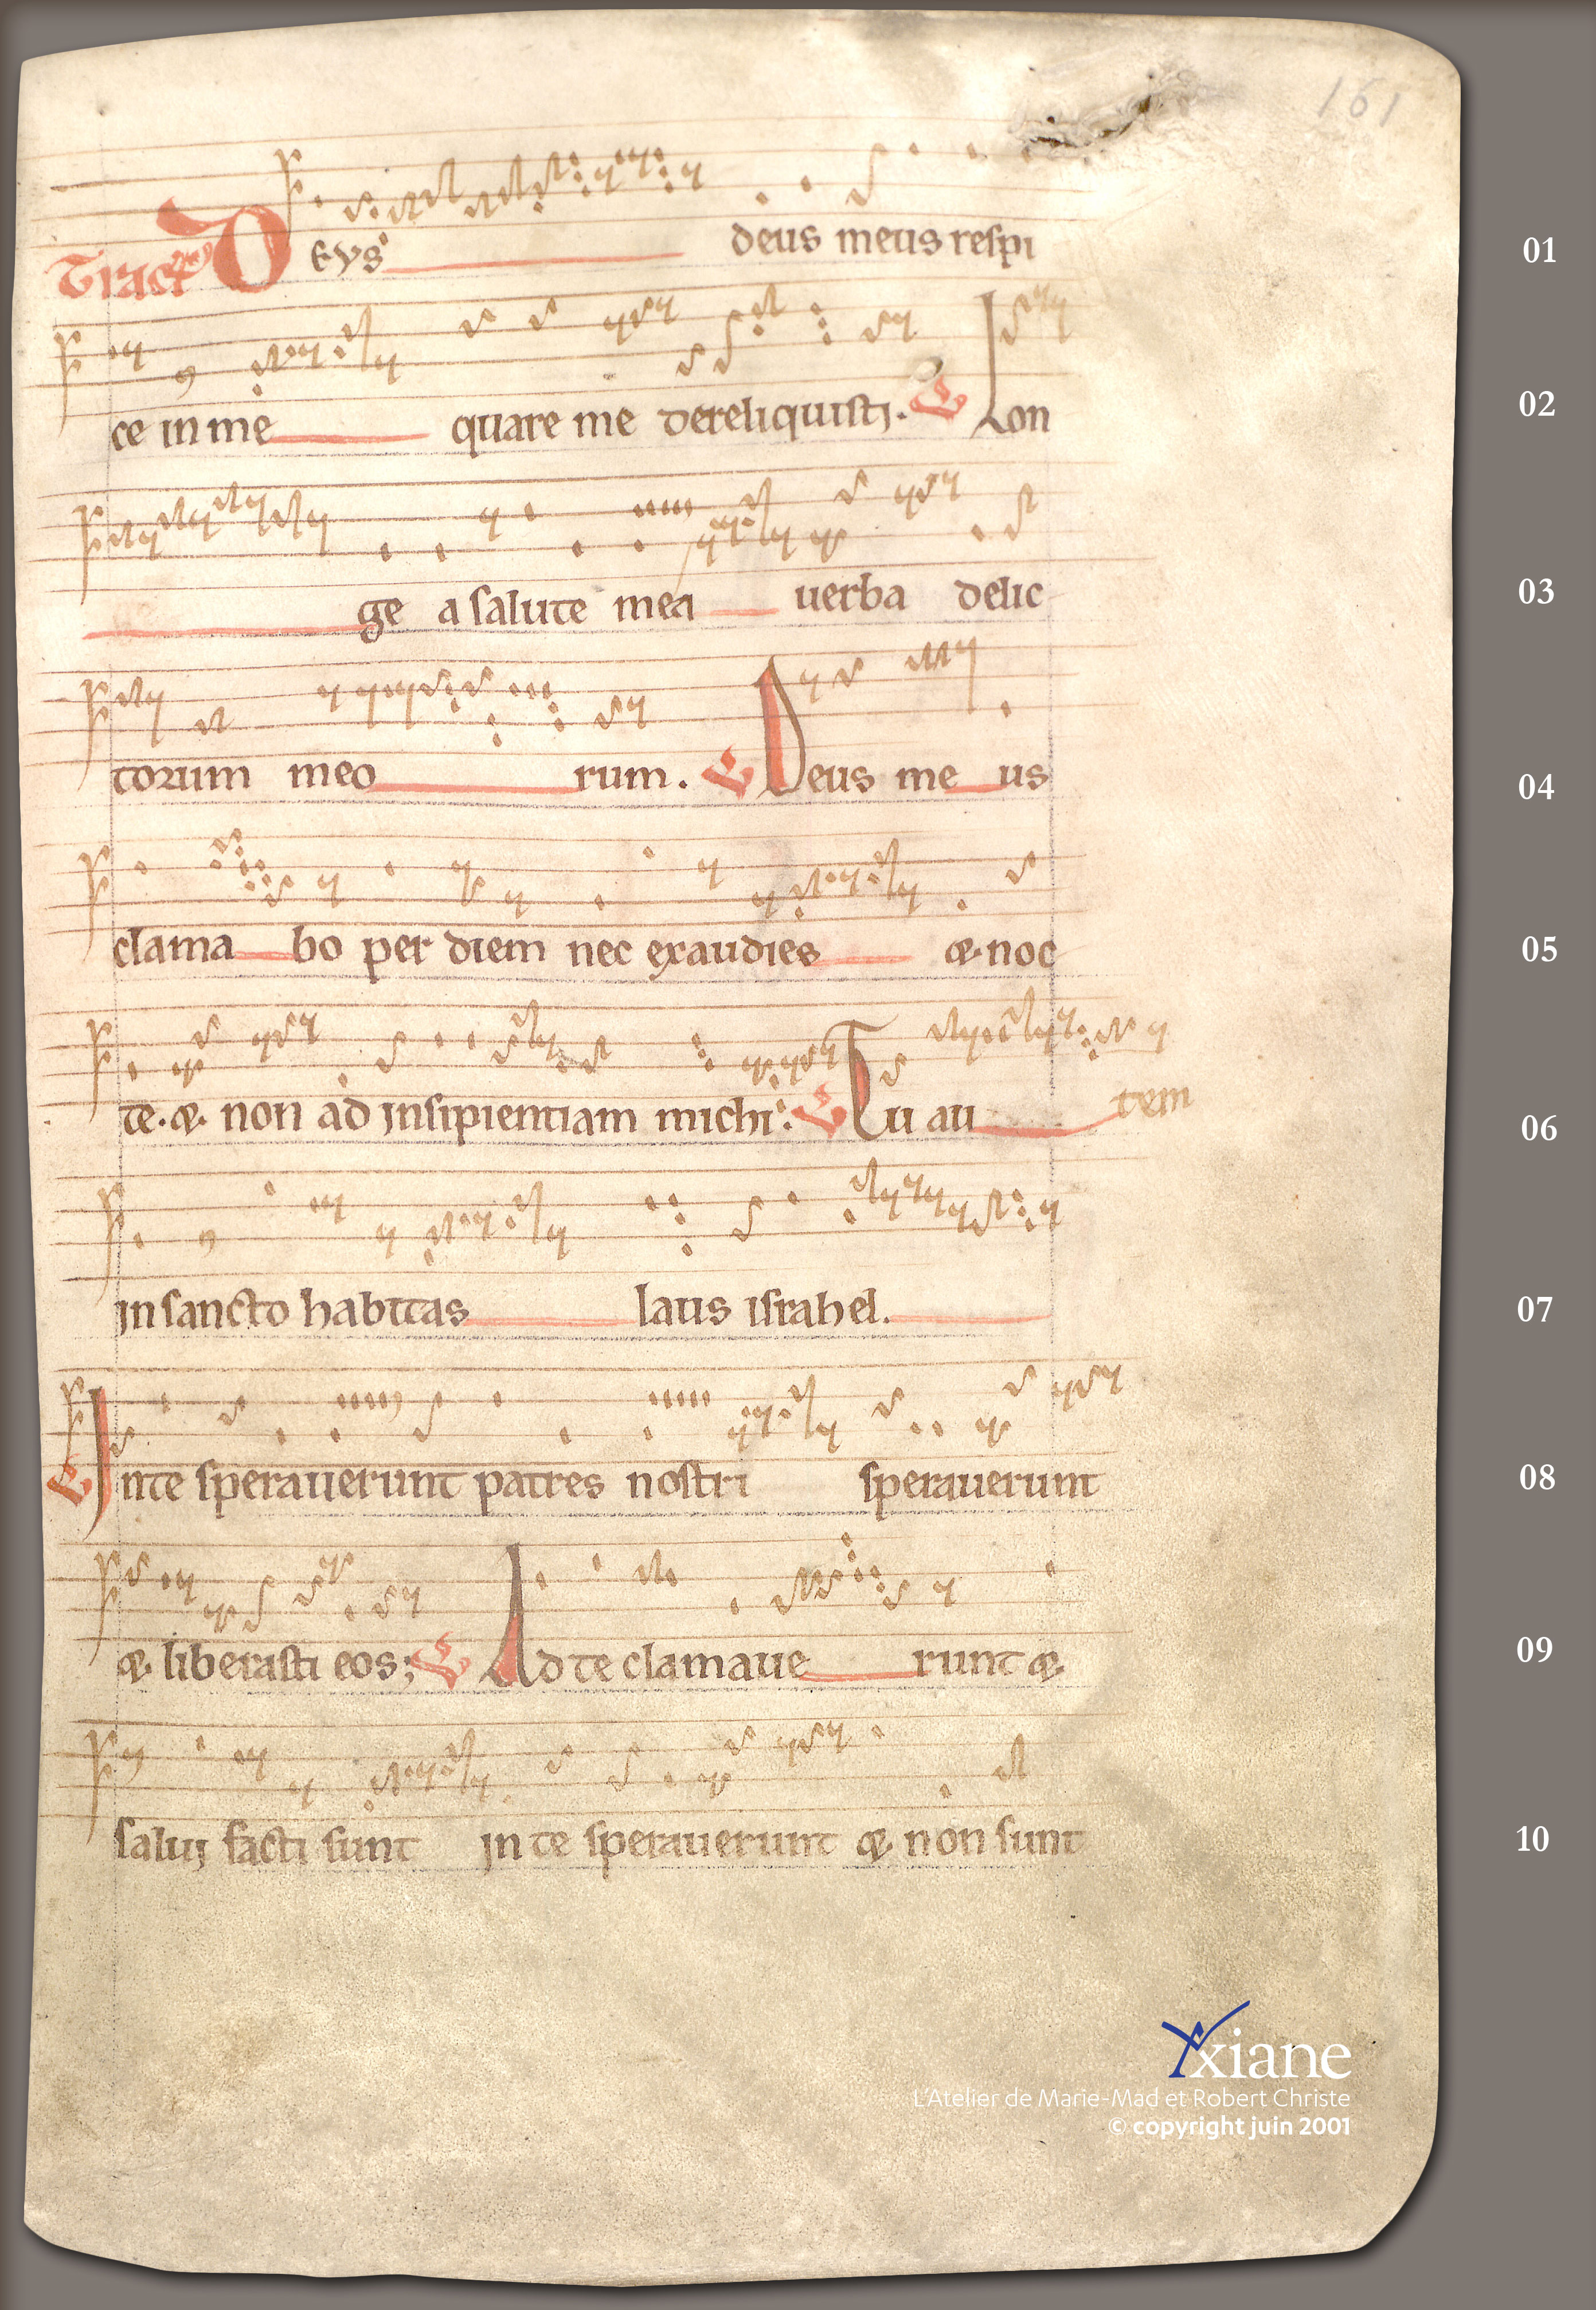 161
Tractus DEVS deus meus respi 01
ce in me quare me dereliquisti. Lon 02
ge a salute mea uerba delic 03
torum meo rum. Deus me us 04
clama bo per diem nec exaudies & noc 05
te. & non ad insipientiam michi: Tu au tem 06
in sancto habitas laus israhel. 07
In te sperauerunt patres nostri sperauerunt 08
& liberasti eos; Ad te clamaue runt & 09
salui facti sunt in te sperauerunt & non sunt 10
xiane
L'Atelier de Marie-Mad et Robert Christe
© copyright juin 2001